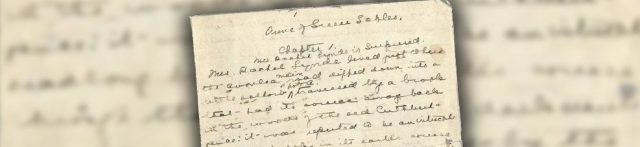 Anne of Green Gables.
Chapter 1.
Mrs. Rachel Lynde is Surprised.
Mrs. Rachel Lynde lived just where
the Avonlea main road dipped down into a
little hollow traversed by a brook
that had its source away back
in the woods of the old Cuthbert
place; it was reputed to be an intricate
brook in its earlier course